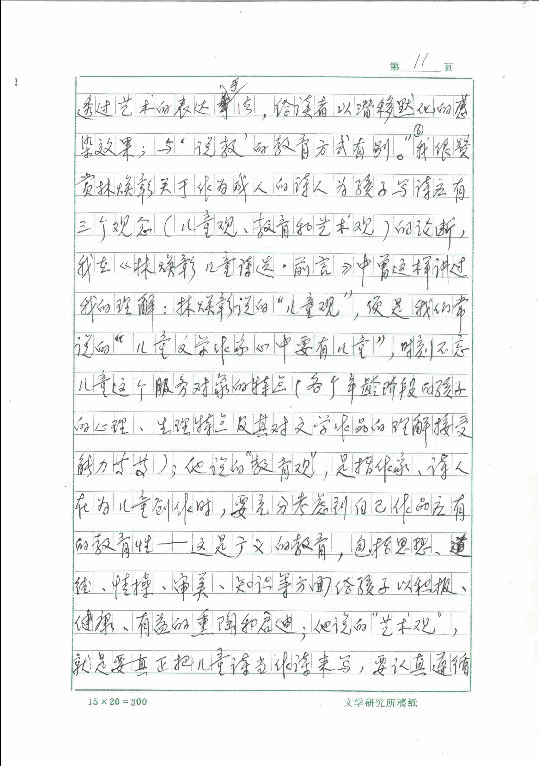 第 11 页
透过艺术的表达手法，给读者以潜移默化的感
染效果；与‘说教’的教育方式有别。”⑥我很赞
赏林焕彰关于作为成人的诗人为孩子写诗应有
三个观念（儿童观、教育和艺术观）的论断，
我在《林焕彰儿童诗选·前言》中曾这样讲过
我的理解：林焕彰说的“儿童观”，便是我们常
说的“儿童文学作家心中要有儿童”，时刻不忘
儿童这个服务对象的特点（各个年龄阶段的孩子
的心理、生理特点及其对文学作品的理解接受
能力等等）；他说的“教育观”，是指作家、诗人
在为儿童创作时，要充分考虑到自己作品应有
的教育性——这是广义的教育，包括思想、道
德、情操、审美、知识等方面给孩子以积极、
健康、有益的熏陶和启迪；他说的“艺术观”，
就是要真正把儿童诗当作诗来写，要认真遵循
15×20=300
文学研究所稿纸